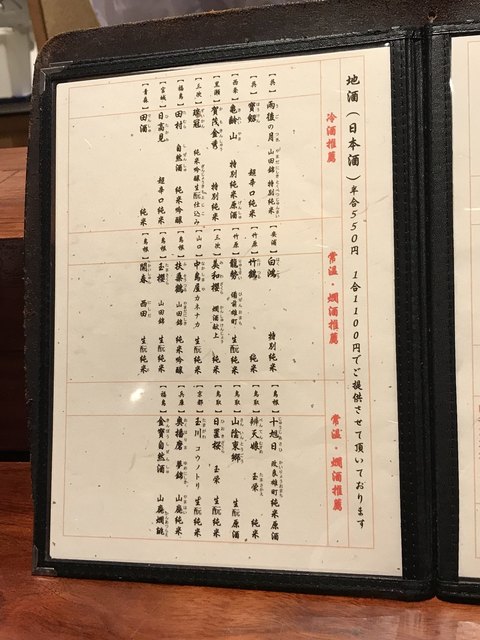 地酒（日本酒）半合550円　1合1100円でご提供させて頂いております
冷酒推薦
【呉】雨後の月　山田錦　特別純米
【呉】寶剱　超辛口純米
【西条】亀齢山　特別純米原酒
【黒瀬】賀茂金秀　特別純米
【三次】瑞冠　純米吟醸生酛仕込み
【福島】田村　自然酒　純米吟醸
【宮城】日高見　超辛口純米
【青森】田酒　純米
常温・燗酒推薦
【安浦】白鴻　特別純米
【竹原】竹鶴　純米
【竹原】龍勢　備前雄町　生酛純米
【三次】美和櫻　燗酒献上　純米
【山口】中島屋　カネナカ　生酛純米
【島根】扶桑鶴　山田錦　純米吟醸
【島根】玉櫻　山田錦　生酛純米
【島根】開春　西田　生酛純米
常温・燗酒推薦
【島根】十旭日　改良雄町純米原酒
【鳥取】辨天娘　玉栄　純米
【鳥取】山陰東郷　生酛原酒
【鳥取】日置桜　玉栄　生酛純米
【京都】玉川　コウノトリ　生酛純米
【兵庫】奥播磨　夢錦　山廃純米
【福島】金寶自然酒　山廃燗誂